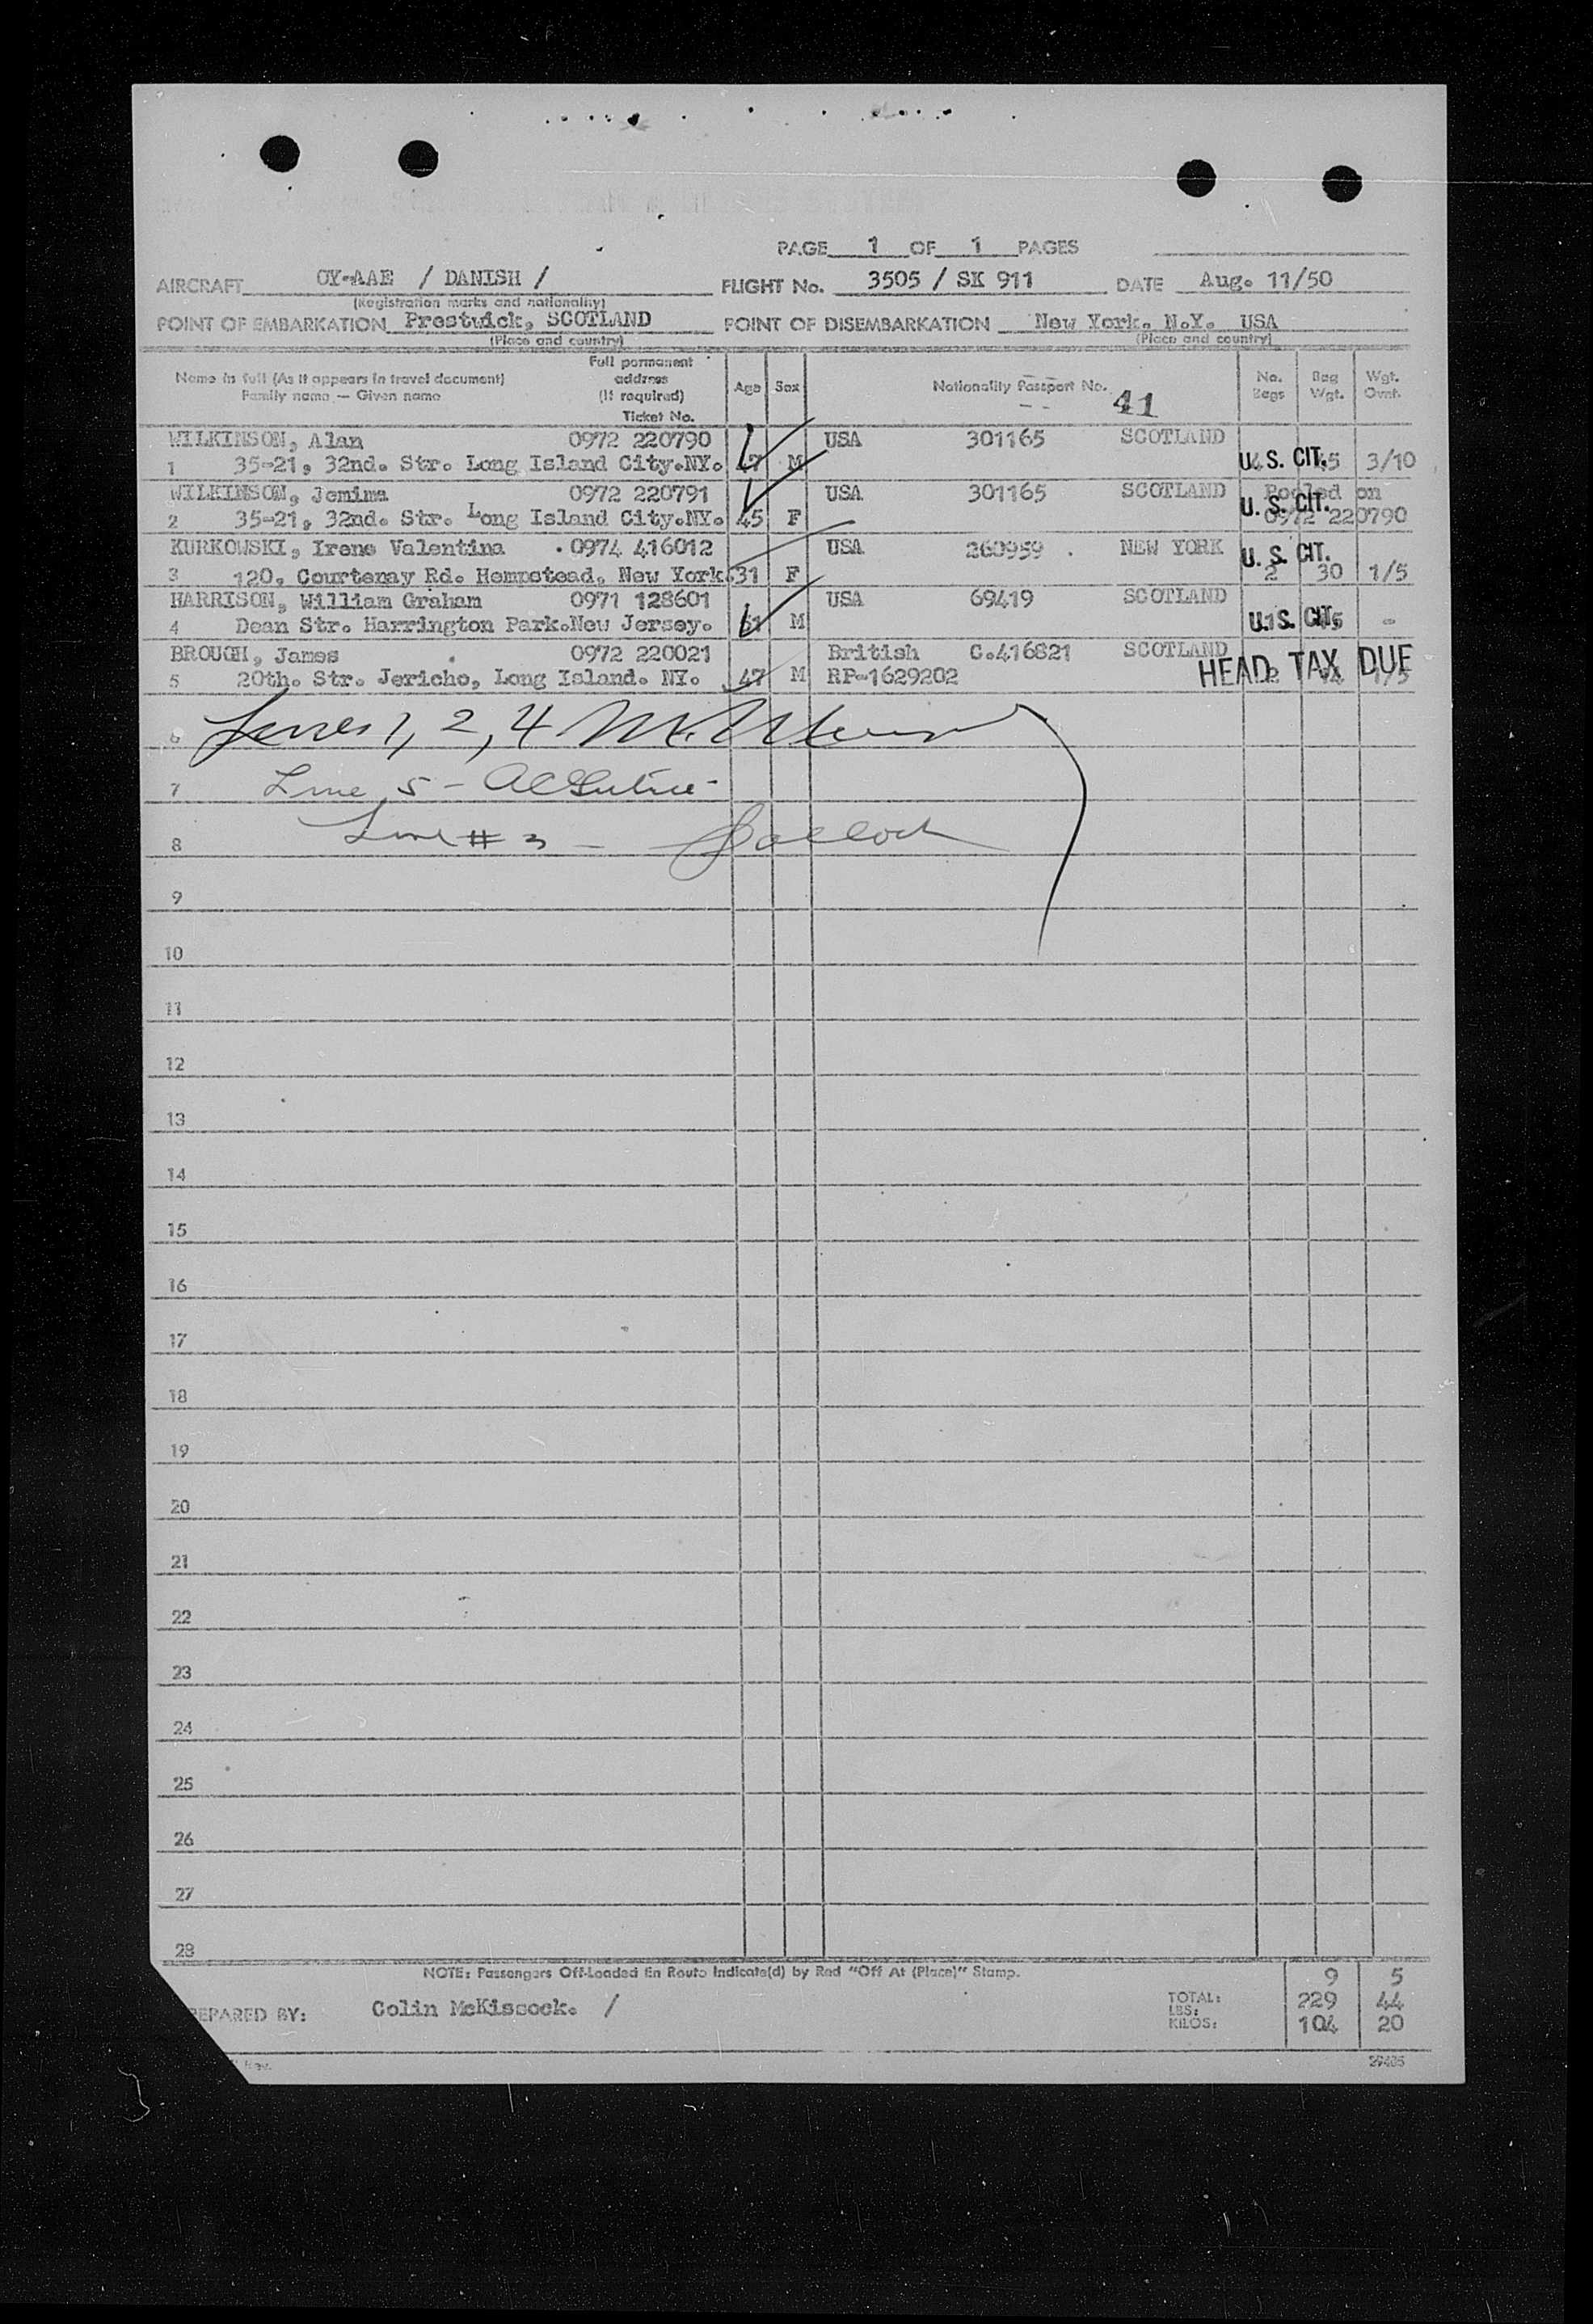 PAGE 1 OF 1 PAGES
AIRCRAFT OY-AAE / DANISH / FLIGHT No. 3505 / SK 911 DATE Aug. 11/50
(Registration marks and nationality)
POINT OF EMBARKATION Prestwick, SCOTLAND POINT OF DISEMBARKATION New York. N.Y. USA
(Place and country) (Place and country)
Name in full (As it appears in travel document)
Family name — Given name
Full permanent
address
(If required)
Ticket No.
Age Sex Nationality Passport No. 41
No.
Bags
Bag
Wgt.
Wgt.
Ovnt.
WILKINSON, Alan 0972 220790 USA 301165 SCOTLAND
1 35-21, 32nd. Str. Long Island City.NY. 47 M U.S. CIT. 3/10
WILKINSON, Jemima 0972 220791 USA 301165 SCOTLAND Pooled on
2 35-21, 32nd. Str. Long Island City.NY. 45 F U. S. CIT. 0972 220790
KURKOWSKI, Irene Valentina 0974 416012 USA 260959 NEW YORK U. S. CIT.
3 120, Courtenay Rd. Hempstead, New York. 31 F 2 30 1/5
HARRISON, William Graham 0971 128601 USA 69419 SCOTLAND
4 Dean Str. Harrington Park.New Jersey. M U.S. CIT. -
BROUGH, James 0972 220021 British C.416821 SCOTLAND
5 20th. Str. Jericho, Long Island. NY. 47 M RP-1629202 HEAD TAX DUE
6 Lines 1, 2, 4
7 Line 5 -
8 Line # 3 -
9
10
11
12
13
14
15
16
17
18
19
20
21
22
23
24
25
26
27
28
NOTE: Passengers Off-Loaded En Route Indicate(d) by Red "Off At (Place)" Stamp.
9 5
EPARED BY: Colin McKissock. / TOTAL:
LBS: 229 44
KILOS: 104 20
Rev.